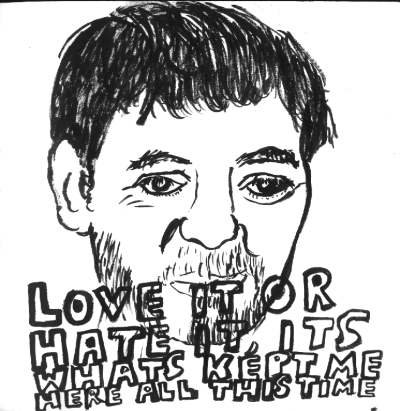 LOVE IT OR
HATE IT ITS
WHATS KEPT ME
HERE ALL THIS TIME